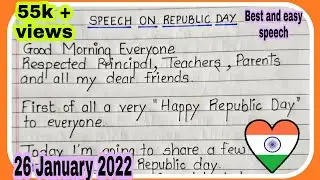 55k +
views
SPEECH ON REPUBLIC DAY
Best and easy
speech
Good Morning Everyone
Respected Principal, Teachers, Parents
and all my dear friends.
First of all a very "Happy Republic Day"
to everyone.
Today I'm going to share a few
26 January 2022
Republic day.